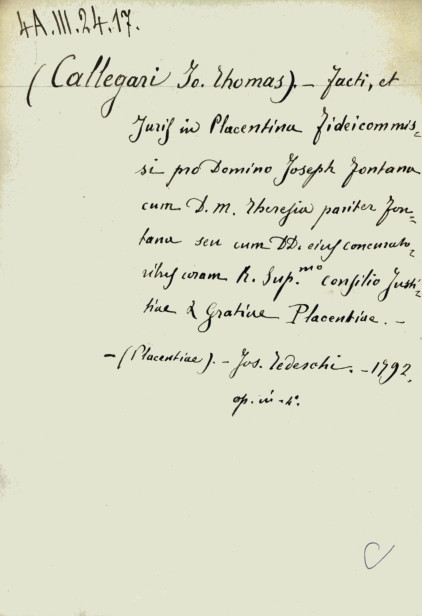 4A.III.24.17.
(Callegari Jo. Thomas). – Facti, et
Juris in Placentina Fideicommis=
si pro Domino Joseph Fontana
cum D. M. Theresia pariter Fon=
tana seu cum DD. eius concurato=
ribus coram R. Sup.mo Consilio Justi=
tiae & Gratiae Placentiae. –
– (Placentiae). – Jos. Tedeschi. – 1792.
op. in-4°.
C